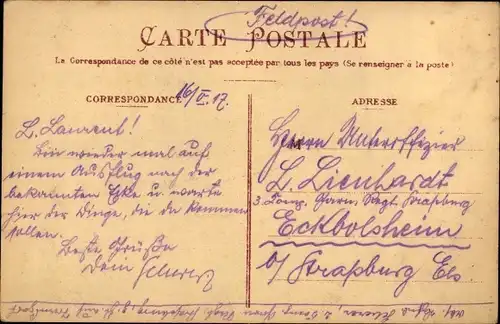 Feldpost!
CARTE POSTALE
La Correspondance de ce côté n'est pas acceptée par tous les pays (Se renseigner à la poste)
CORRESPONDANCE
16/VI. 17.
L. Laurent!
Bin wieder mal auf
einem Ausflug nach der
bekannten Ecke u. warte
hier der Dinge, die da kommen
sollen.
Beste Grüße
Dein
ADRESSE
M
Herrn Unteroffizier
L. Lienhardt
3. Komp. Garn. Batl. Straßburg
Eckbolsheim
b/ Straßburg Els.